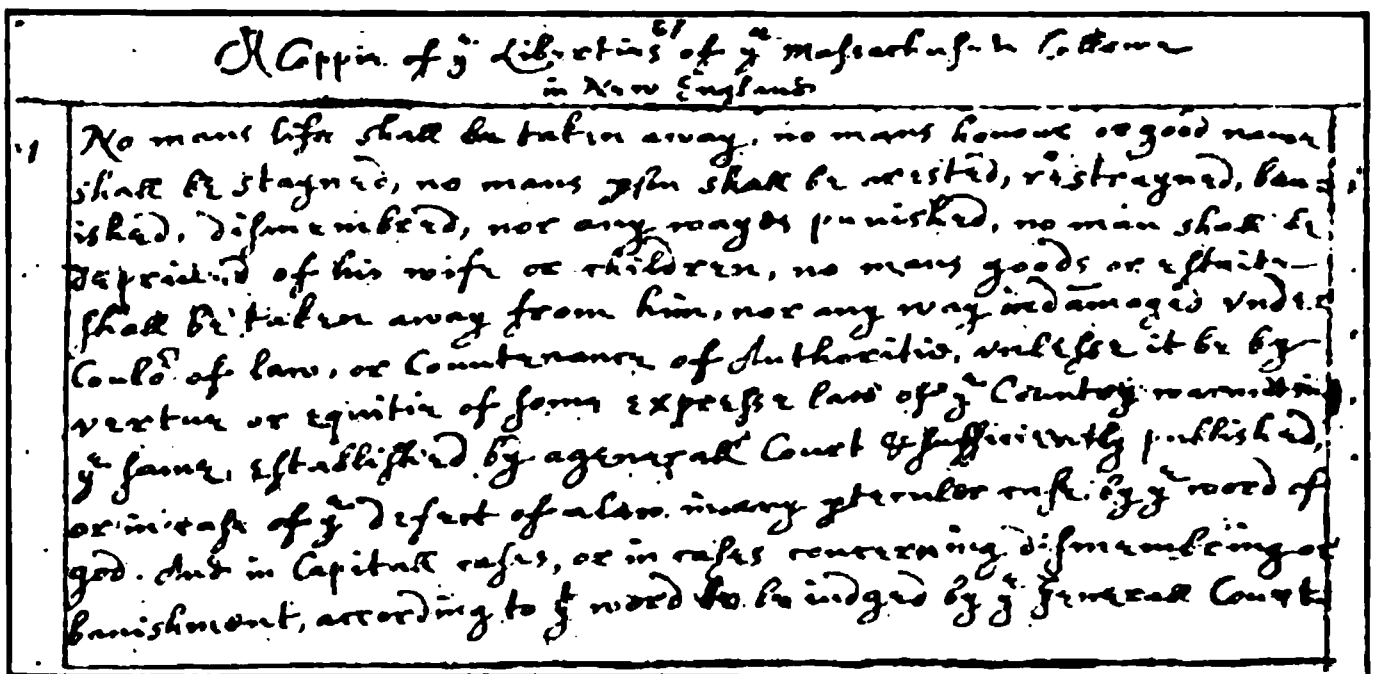 A Coppie of yͤ Liberties of yͤ Massachusets Collonie
in New England
1
No mans life shall be taken away, no mans honour or good name
shall be stayned, no mans pson shall be arested, restrayned, ban=
ished, dismembred, nor any wayes punished, no man shall be
deprived of his wife or children, no mans goods or estaite
shall be taken away from him, nor any way indamaged vnder
Coulor of law, or Countenance of Authoritie, vnlesse it be by
vertue or equitie of some expresse law of yͤ Country warranting
yͤ same, established by a generall Court & sufficiently published,
or in case of yͤ defect of a law in any pteculer case by yͤ word of
god. And in Capitall cases, or in cases concerning dismembring or
banishment, according to yͭ word to be iudged by yͤ Generall Court